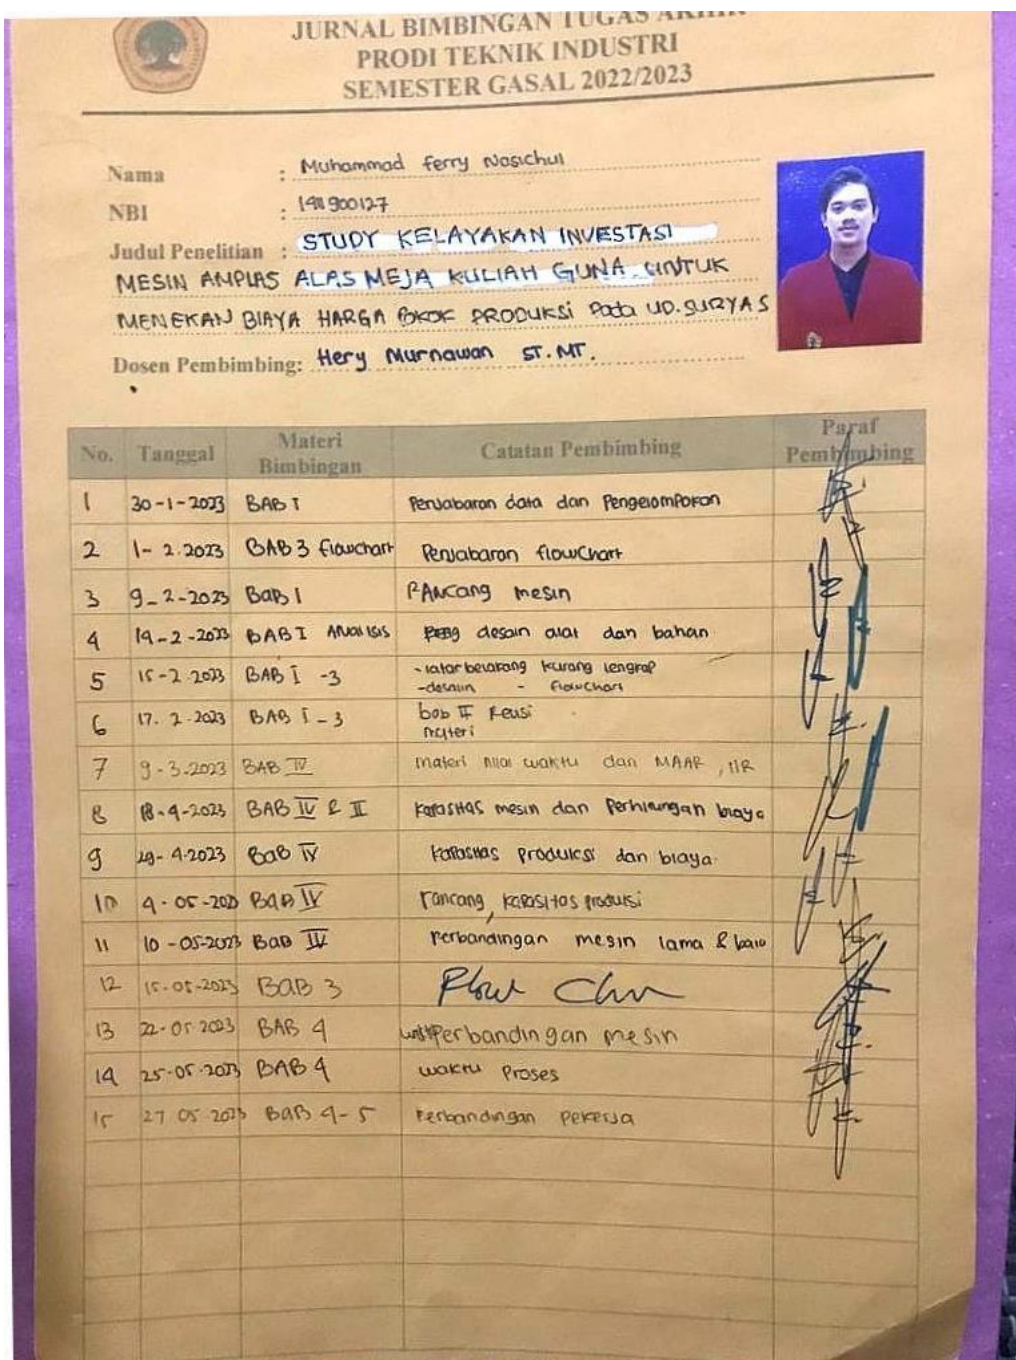 JURNAL BIMBINGAN TUGAS AKHIR
PRODI TEKNIK INDUSTRI
SEMESTER GASAL 2022/2023
Nama : Muhammad Ferry Nasichul
NBI : 1411900127
Judul Penelitian : STUDY KELAYAKAN INVESTASI
MESIN AMPLAS ALAS MEJA KULIAH GUNA UNTUK
MENEKAN BIAYA HARGA POKOK PRODUKSI Pada UD. SURYAS
Dosen Pembimbing: Hery Murnawan ST. MT.
No. Tanggal Materi Bimbingan Catatan Pembimbing Paraf Pembimbing
1 30-1-2023 BAB I Penjabaran data dan Pengelompokon
2 1-2.2023 BAB 3 flowchart Penjabaran flowChart
3 9-2-2023 BaB 1 RANcang mesin
4 14-2-2023 BAB I ANalisis desain alat dan bahan
5 15-2.2023 BAB I -3 -latar belakang kurang lengkap
-desain - flowchart
6 17.2.2023 BAB I-3 bab II Revisi
materi
7 9-3.2023 BAB IV materi nilai waktu dan MAAR, IIR
8 18-4-2023 BAB IV & II kapasitas mesin dan Perhitungan biaya
9 29-4-2023 BaB IV kapasitas produksi dan biaya
10 4-05-2023 BAB IV rancang, kapasitas produksi
11 10-05-2023 BaB IV Perbandingan mesin lama & baru
12 15-05-2023 BAB 3 Flow
13 22-05 2023 BAB 4 Perbandingan mesin
14 25-05-2023 BAB 4 waktu Proses
15 27 05-2023 BAB 4-5 Perbandingan Pekerja